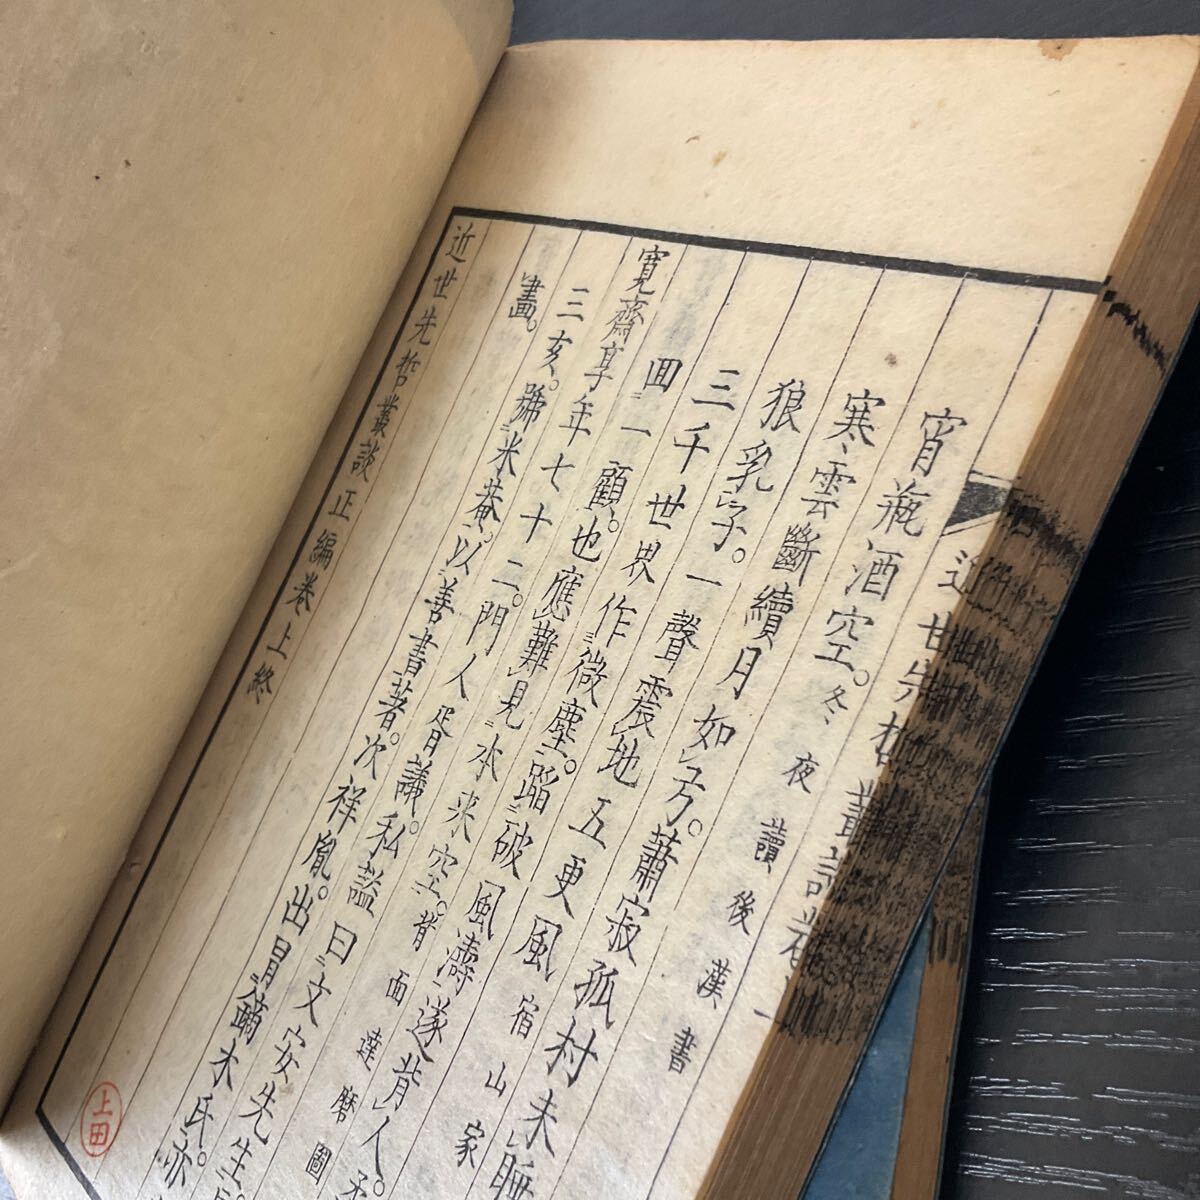 近世先哲叢談卷一
宵瓶酒空。冬夜讀後漢書
寒雲斷續月如弓。蕭寂孤村未睡
狼乳子。一聲震地五更風宿山家
三千世界作微塵。蹈破風濤遂背人。
囬一顧。也應難見本来空。背面達磨圖
寛齋享年七十二。門人胥議私謚曰文安先生。
三亥。號米菴。以善書著。次祥胤。出冐鏑木氏。亦
畫。
近世先哲叢談正編卷上終
上田